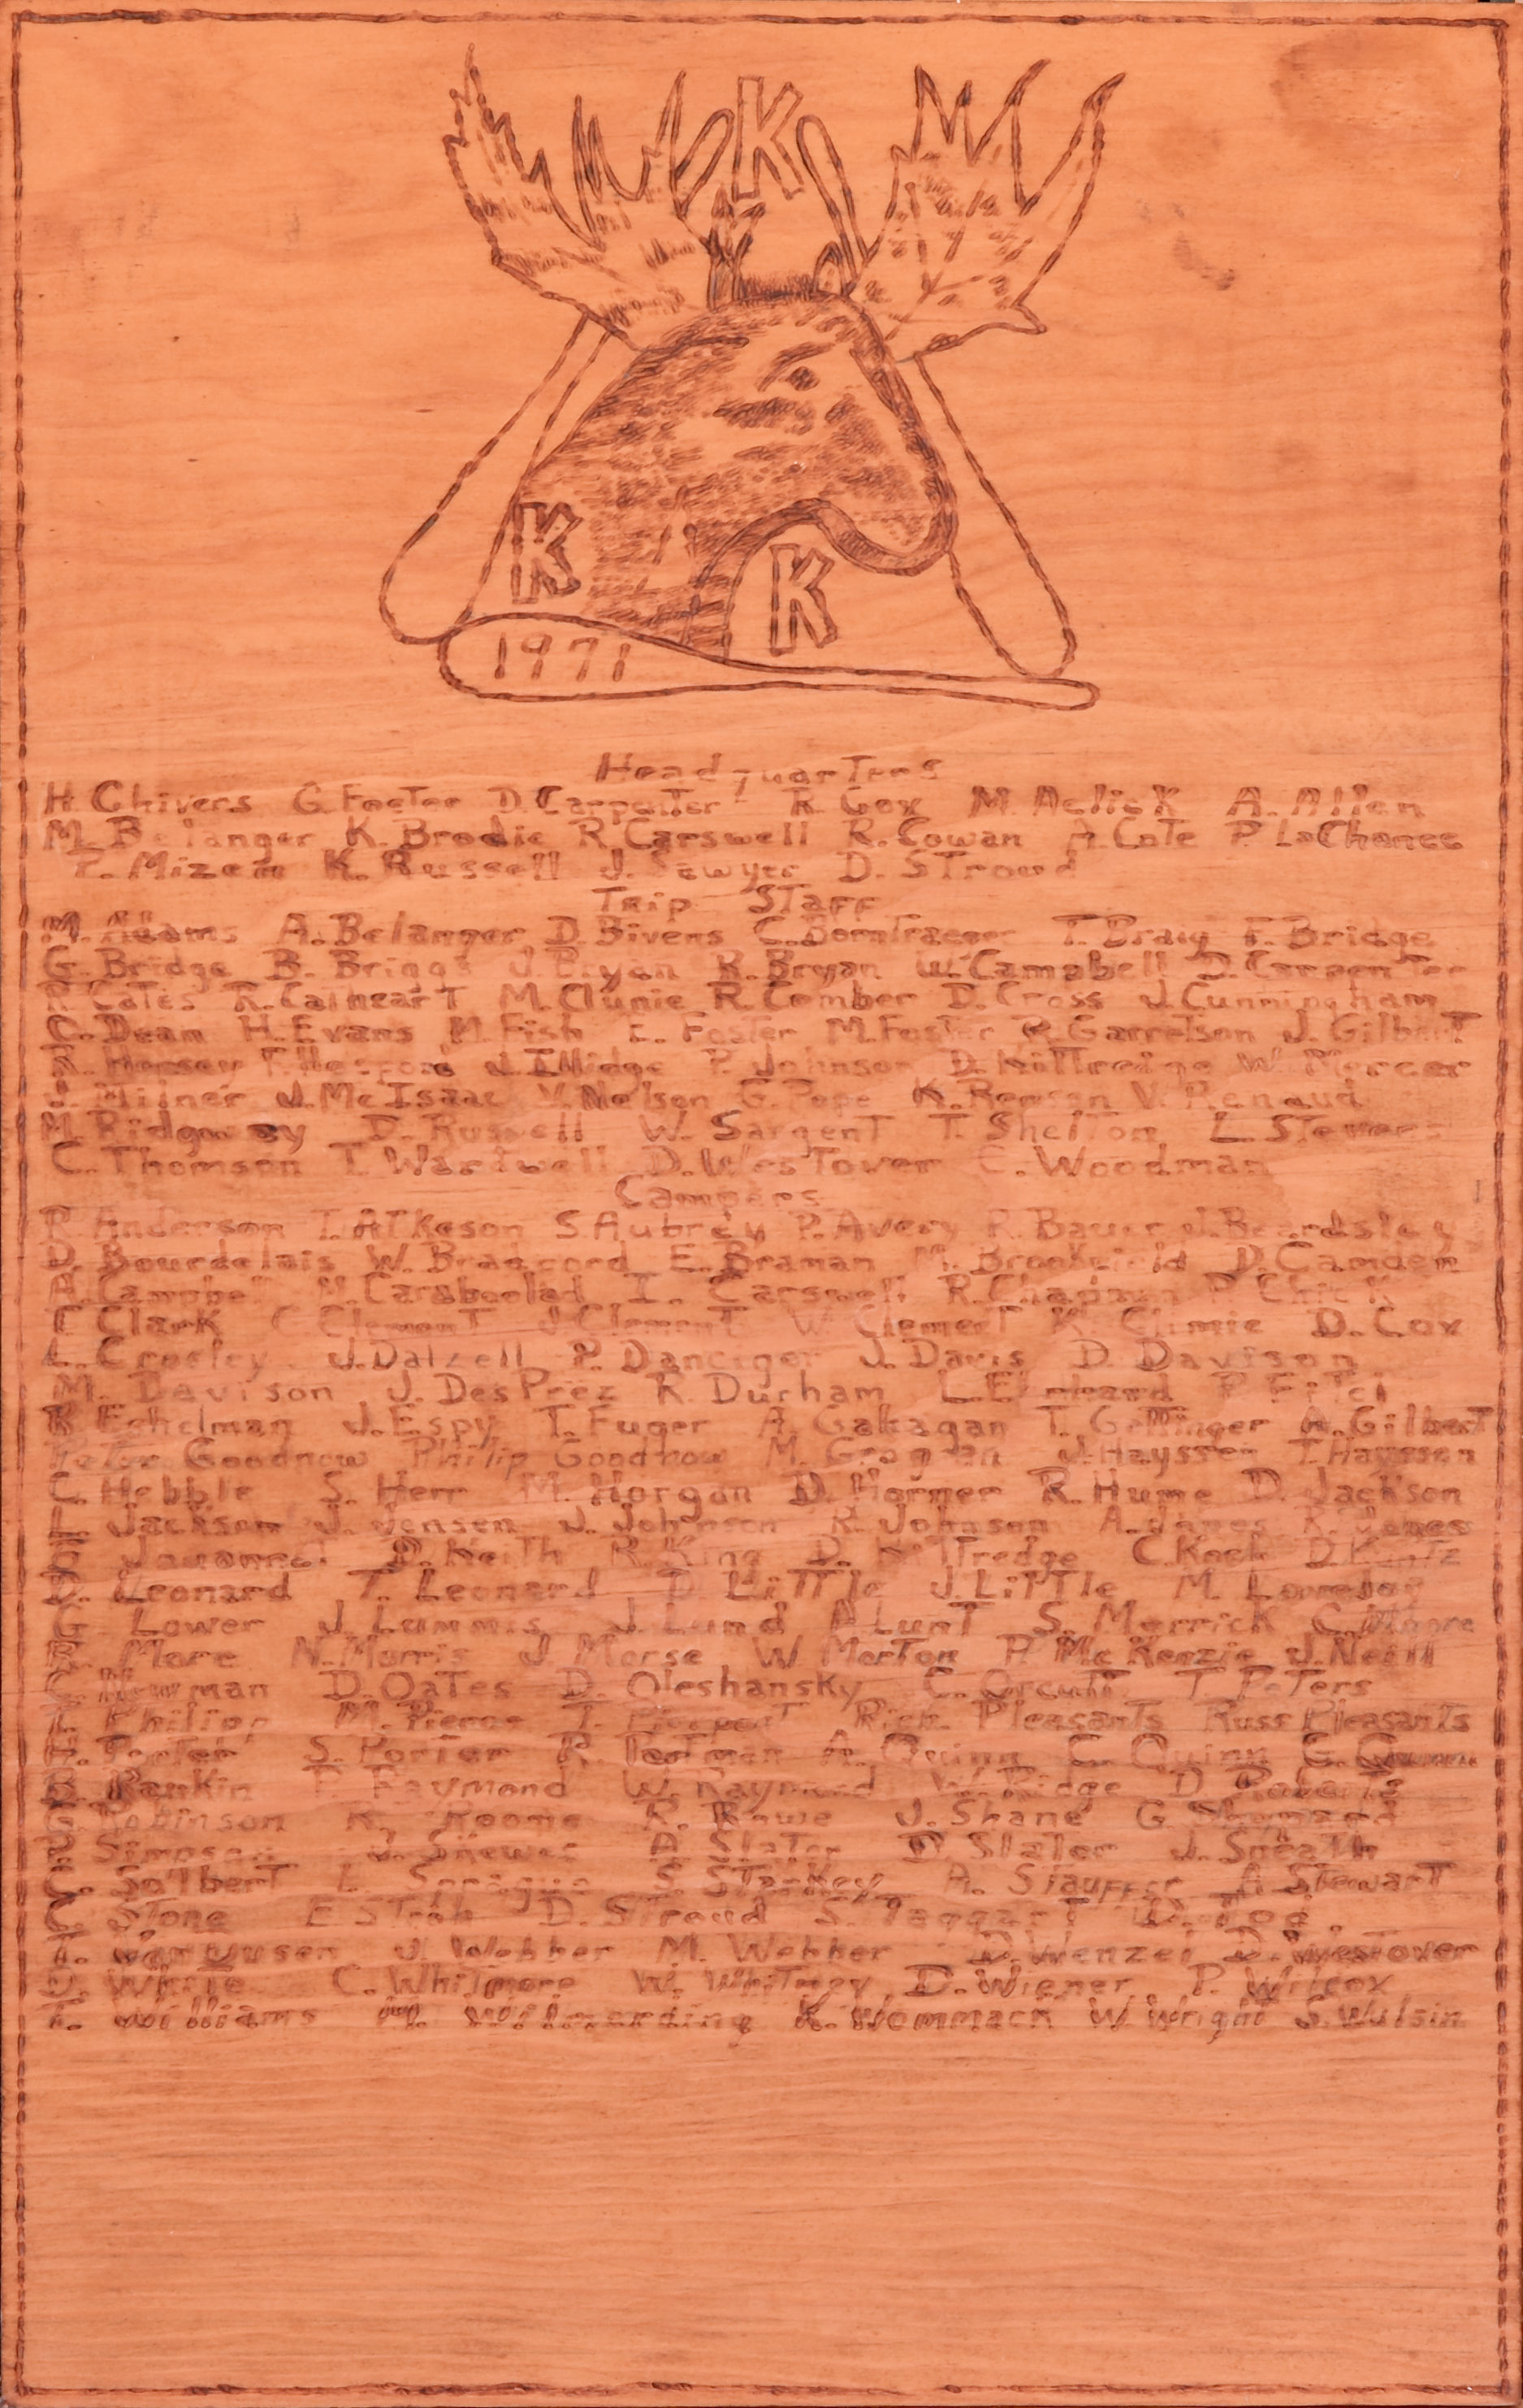 K
K
K
1971
Headquarters
H. Chivers G. Foster D. Carpenter R. Cox M. Aelick A. Allen
M. Belanger K. Brodie R. Carswell R. Cowan A. Cote P. LaChance
K. Russell J. Sawyer D. Stroud
Trip Staff
M. Adams A. Belanger D. Bivens C. Borntraeger T. Braig F. Bridge
G. Bridge B. Briggs J. Bryan R. Bryan W. Campbell D. Carpenter
R. Cates R. Cathcart M. Clunie R. Comber D. Cross J. Cunningham
C. Dean H. Evans M. Fish E. Foster M. Foster R. Garretson J. Gilbert
J. Illidge P. Johnson D. Kittredge W. Mercer
Milner J. McIsaac V. Nelson G. Pope K. Reasan V. Renaud
M. Ridgway D. Russell W. Sargent T. Shelton L. Stevens
C. Thomson T. Wardwell D. Westover C. Woodman
Campers
P. Anderson T. Atkeson S. Aubrey P. Avery R. Bauer J. Beardsley
D. Bourdelais W. Bradford E. Braman M. Brookfield D. Camden
A. Campbell Carswell R. Chapman P. Chick
T. Clark C. Clement J. Clement W. Clement K. Climie D. Cox
L. Crosley J. Dalzell P. Danciger J. Davis D. Davison
M. Davison J. DesPrez R. Durham
J. Espy T. Fuger A. Gakagan T. Gettinger A. Gilbert
Peter Goodnow Philip Goodnow M. Grogan J. Hayssen T. Hayssen
C. Hebble S. Herr M. Horgan D. Horner R. Hume D. Jackson
L. Jackson J. Jensen J. Johnson R. Johnson A. Jones R. Jones
D. Keith R. King D. Kittredge C. Koch D. Kuntz
D. Leonard T. Leonard D. Little J. Little M. Loveday
G. Lower J. Lummis J. Lund A. Lunt S. Merrick C. Moore
R. More N. Morris J. Morse W. Morton P. McKenzie J. Neill
C. Newman D. Oates D. Oleshansky C. Orcutt T. Peters
M. Pierce T. Pierpont Rich. Pleasants Russ Pleasants
H. Porter S. Porter R. Postman A. Quinn C. Quinn
B. Rankin F. Raymond W. Raymond W. Ridge D. Roberts
G. Robinson K. Rooms R. Rowe J. Shane G. Shepard
P. Simpson J. Skewes A. Slater D. Slater J. Sneath
C. Solbert L. Sprague S. Starkey A. Stauffer A. Stewart
C. Stone E. Stroh D. Stroud S. Taggart
A. VanDusen J. Webber M. Webber D. Wenzel D. Westover
D. White C. Whitmore W. Whitney D. Wiener P. Wilcox
T. Williams M. Wilmerding K. Wommack W. Wright S. Wilsin